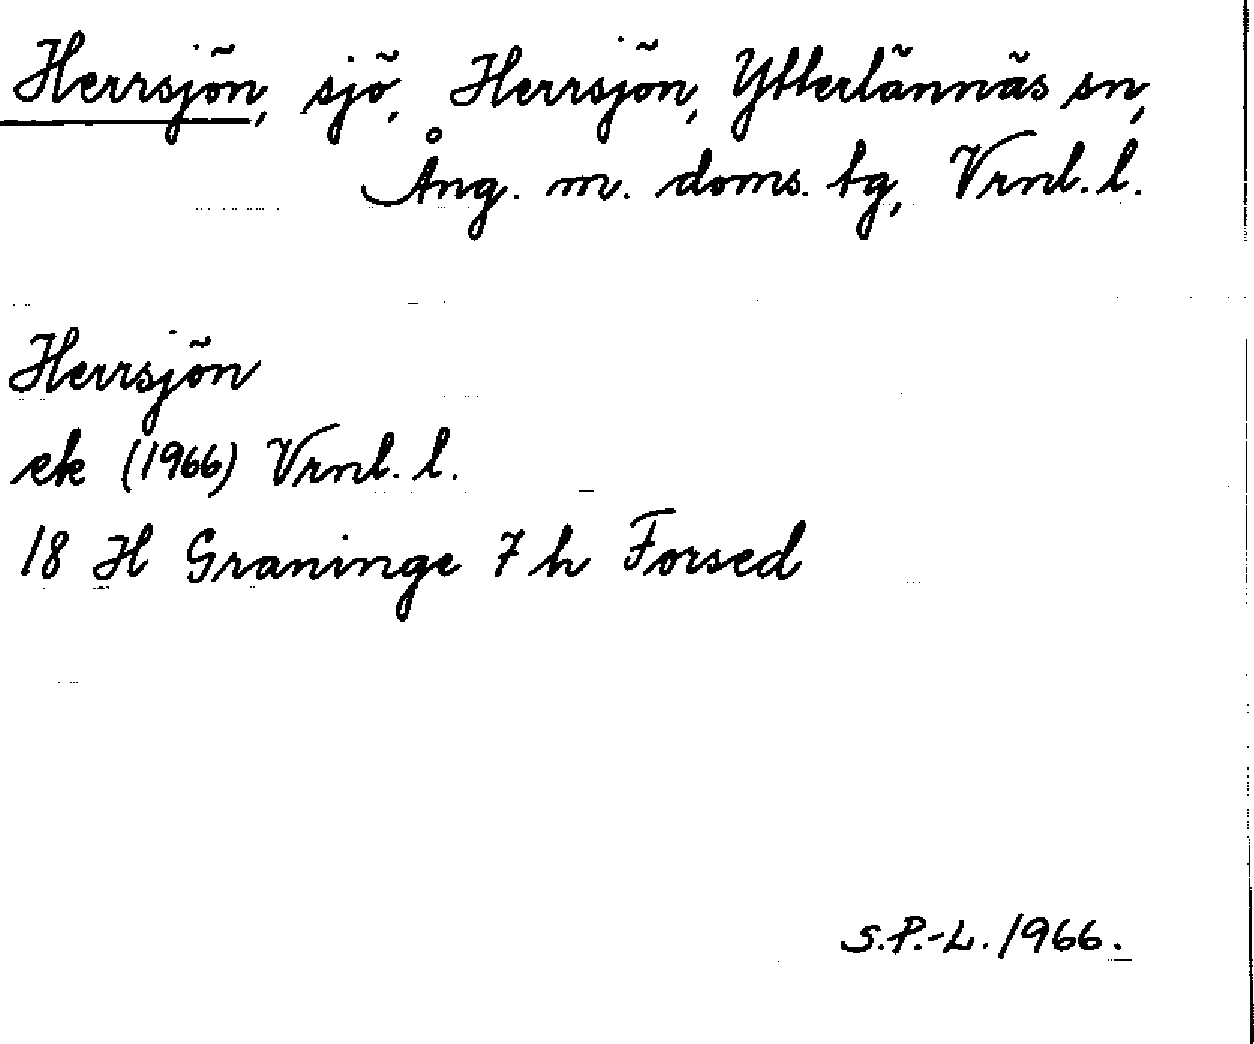 Herrsjön, sjö, Herrsjön, Ytterlännäs sn,
Ång. m. doms. tg, Vrnl. l.
Herrsjön
ek (1966) Vrnl. l.
18 H Graninge 7 h Forsed
S.P.-L. 1966.